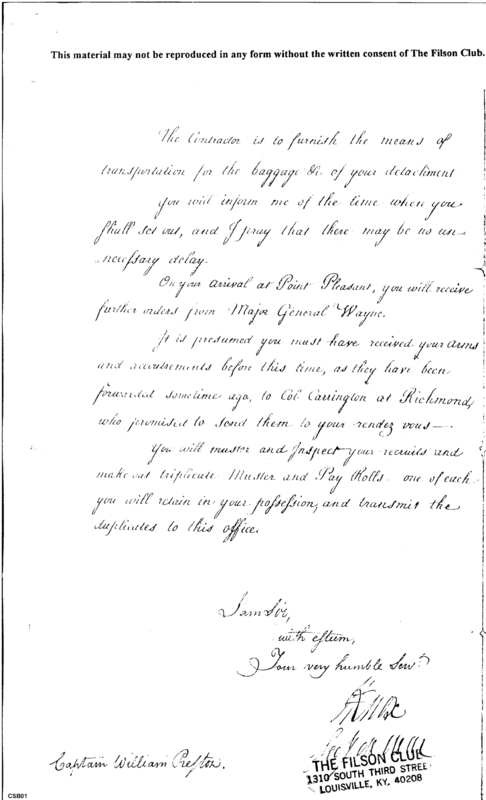 This material may not be reproduced in any form without the written consent of The Filson Club.
The Contractor is to furnish the means of
transportation for the baggage &c of your detachment
You will inform me of the time when you
shall set out, and I pray that there may be no un-
necessary delay.
On your arrival at Point Pleasant, you will receive
further orders from Major General Wayne.
It is presumed you must have received your Arms
and accoutrements before this time, as they have been
forwarded sometime ago, to Col Carrington at Richmond,
who promised to send them to your rendez vous—
You will muster and Inspect your recruits and
make out triplicate Muster and Pay Rolls one of each
you will retain in your possession, and transmit the
duplicates to this office.
I am Sir,
with esteem,
Your very humble Servt
H Knox
Secy of War
Captain William Preston.
THE FILSON CLUB
1310 SOUTH THIRD STREET
LOUISVILLE, KY. 40208
CSB01